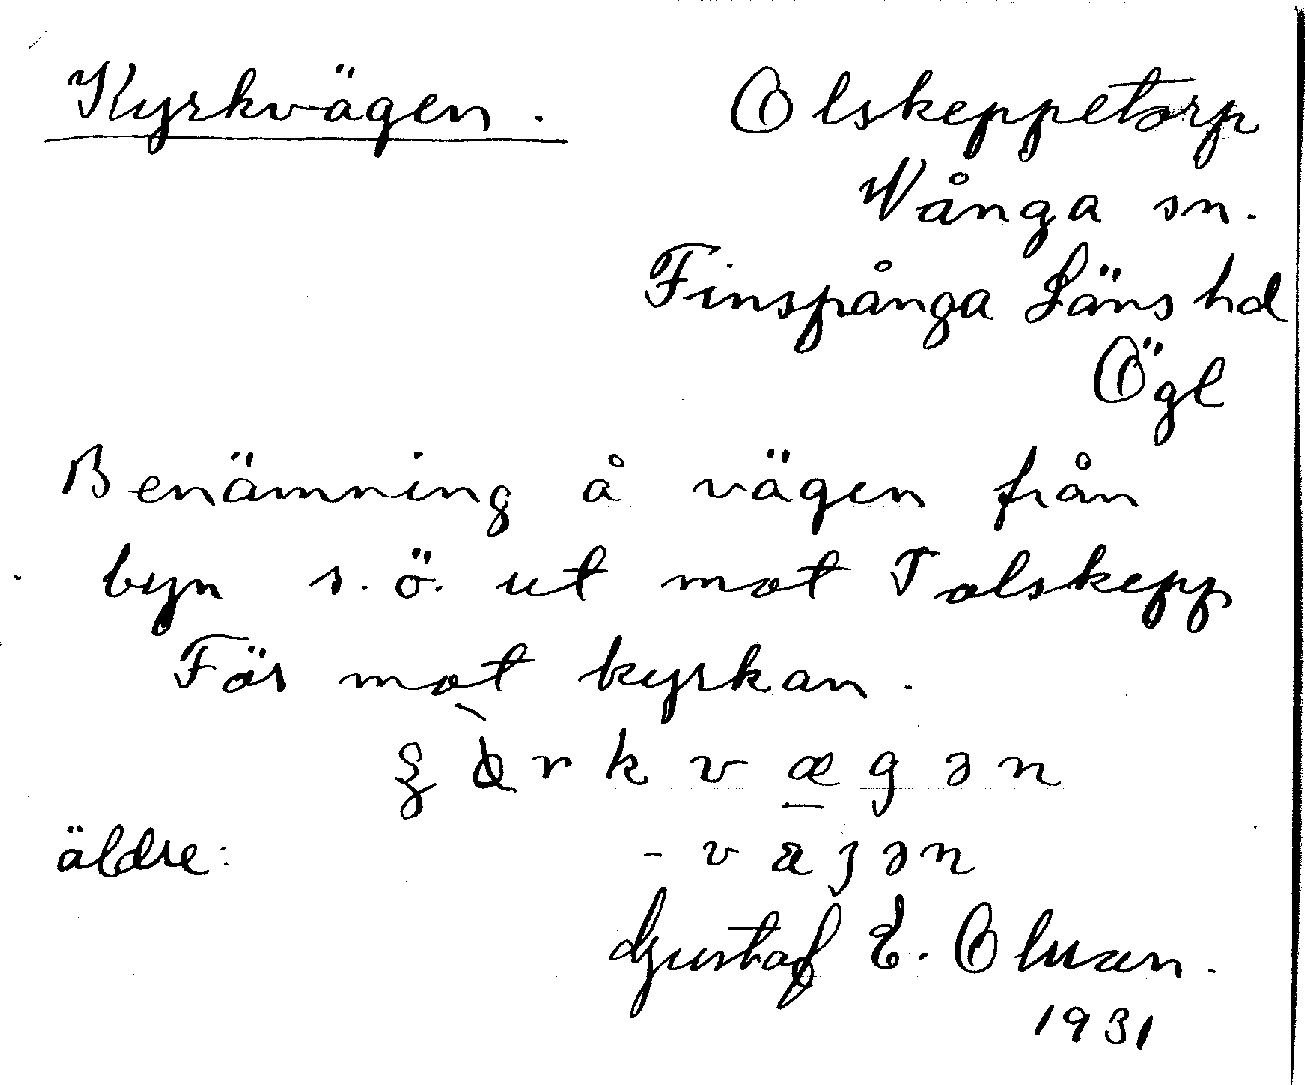 Kyrkvägen.
Olskeppetorp
Vånga sn.
Finspånga Läns hd
Ögl
Benämning å vägen från
byn s.ö. ut mot Tolskepp
För mot kyrkan.
rkvægən
äldre: -væȝən
Gustaf E. Olsson.
1931